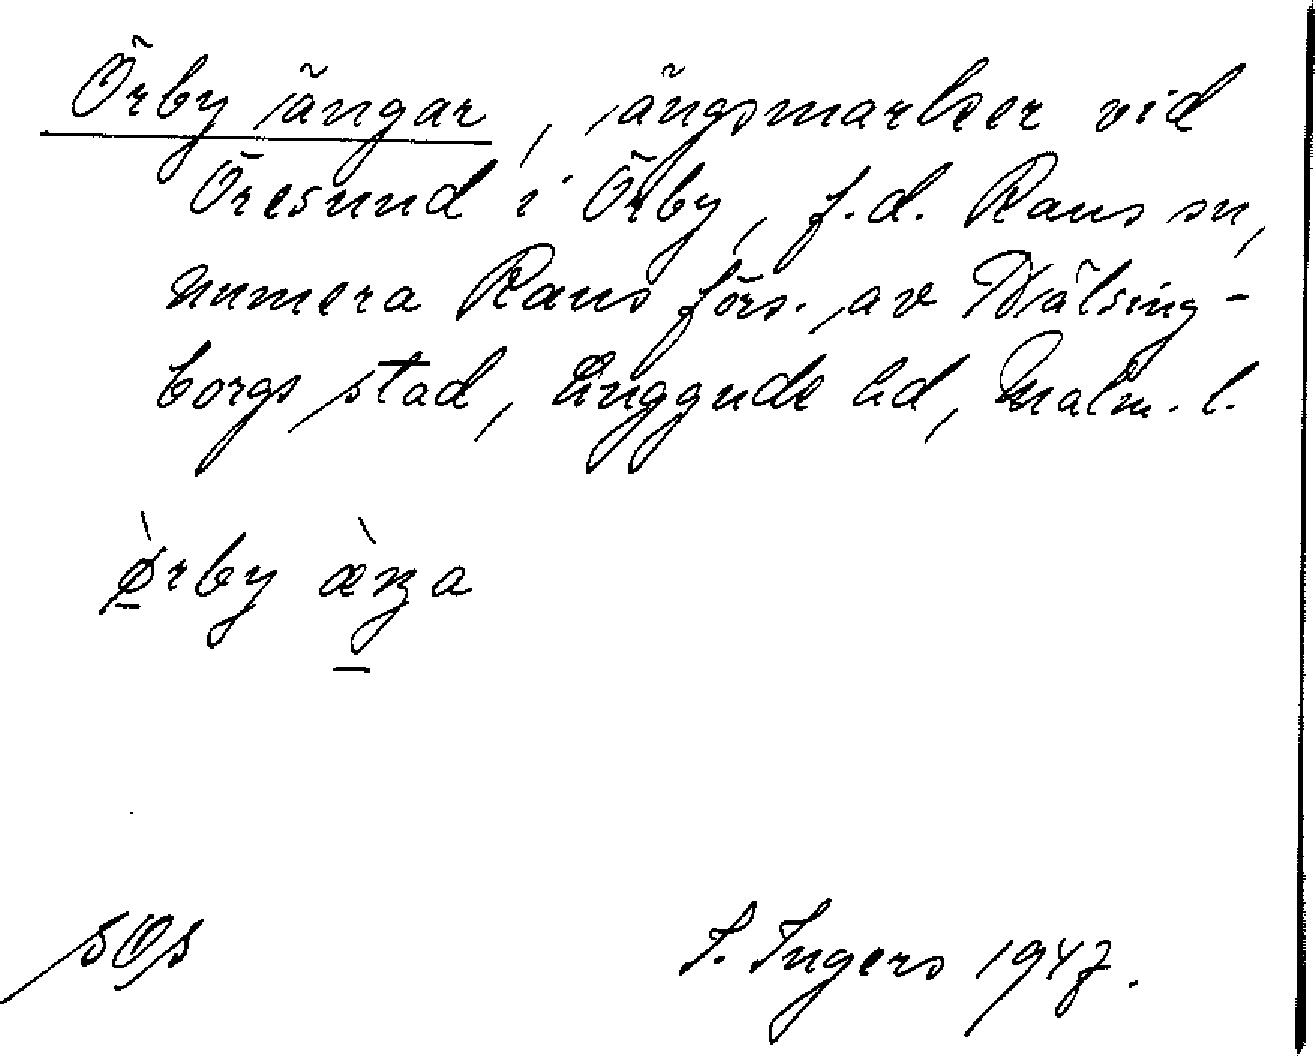 Örby ängar, ängsmarker vid
Öresund i Örby, f.d. Raus sn,
numera Raus förs. av Hälsing-
borgs stad, Luggude hd, Malm. l.
ø̀rby æ̀ŋa
sOs
I. Ingers 1947.